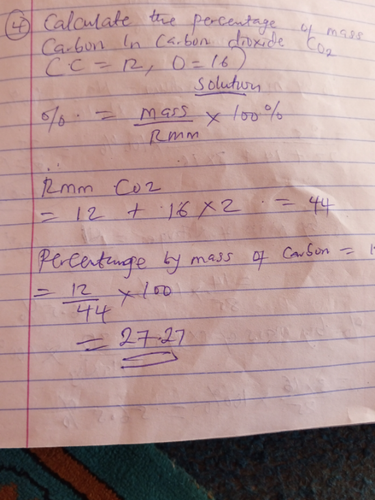 4) Calculate the percentage of mass
Carbon in Carbon dioxide CO2
(C = 12, O = 16)
Solution
% = mass/Rmm × 100%
Rmm CO2
= 12 + 16 × 2 = 44
Percentange by mass of Carbon = 1
= 12/44 × 100
= 27.27